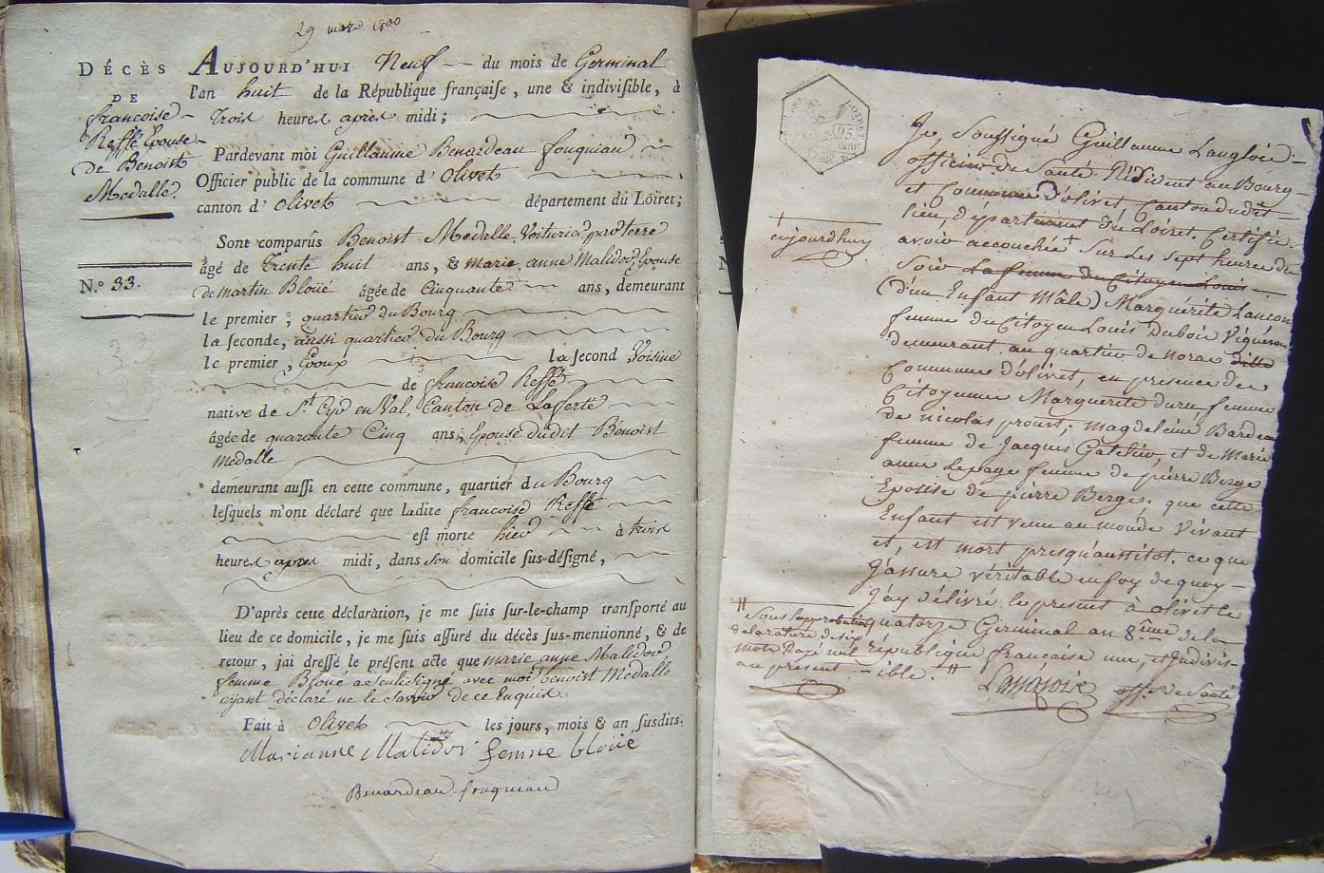 29 mars 1800
DÉCÈS
DE
françoise
Reffé Epouse
de Benoist
Medalle.
N.º 33.
AUJOURD'HUI Neuf du mois de Germinal
l'an huit de la République française, une & indivisible, à
Trois heures après midi;
Pardevant moi Guillaume Benardeau fouquiau
Officier public de la commune d'Olivet
canton d'Olivet département du Loiret;
Sont comparûs Benoist Medalle, Voiturier par terre
âgé de Trente huit ans, & marie anne Malidor, Epouse
de martin Bloüé âgée de Cinquante ans, demeurant
le premier, quartier du Bourg
la seconde, aussi quartier du Bourg
le premier, Epoux la second Voisine
de françoise Reffé
native de St. Cyr en Val, Canton de Laferté
âgée de quarante Cinq ans, Epouse dudit Benoist
Medalle
demeurant aussi en cette commune, quartier du Bourg
lesquels m'ont déclaré que ladite françoise Reffé
est morte hier à trois
heures après midi, dans son domicile sus-désigné,
D'après cette déclaration, je me suis sur-le-champ transporté au
lieu de ce domicile, je me suis assuré du décès sus-mentionné, & de
retour, j'ai dressé le présent acte que marie anne Malidor
femme Bloüé a seule signé avec moi, benoist Medalle
ayant déclaré ne le savoir de ce Enquis.
Fait à Olivet les jours, mois & an susdits.
Marianne Malidor femne bloüe
Benardeau fouquiau
Je, Soussigné Guillaume Langlois
officier de Santé Résident au Bourg
et Commune d'olivet Canton dudit
lieu, département du Loiret. Certifie
avoir accouchée + Sur les sept heures du
+ aujourdhuy
Soir La femme du Citoyen Louis
(d'un Enfant Mâle) Marguérite Lancon
femme du Citoyen Louis Dubois Vigneron
demeurant au quartier de noras ditte
Commune d'olivet, en presence de
Citoyenne Marguerite duru femme
de nicolas proust; magdeleine Bardeau
femme de Jacques Gatelier, et de Marie
anne Lepage femme de pierre Berge
Epouse de pierre Berge. que cette
Enfant est venu au monde Vivant
et, est mort presqu'aussitot. ce que
J'assure véritable en foy de quoy
J'ay délivré le present à olivet le
quatorze Germinal an 8ème de la
république française une, et Indivis-
ible. #
# Sous l'approbation
de la rature de six
mots Rayé nul
au présent
Langlois off. de Santé